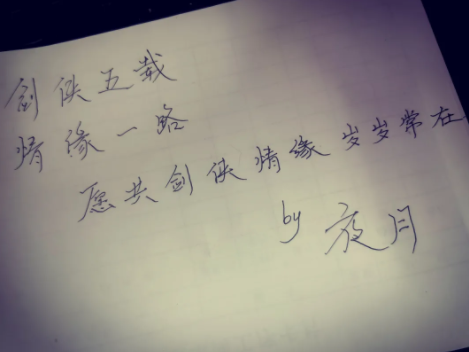 剑侠五载
情缘一路
愿共剑侠情缘岁岁常在
by 夜月